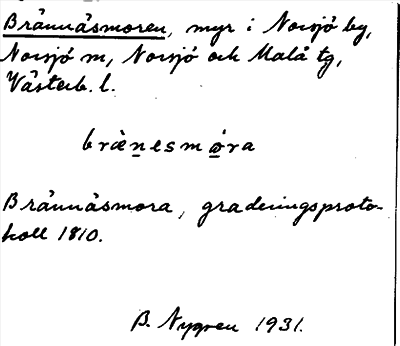 Brånnåsmoren, myr i Norsjö by,
Norsjö sn, Norsjö och Malå tg,
Västerb. l.
bræ̀nesmǿra
Brännåsmora, graderingsproto-
koll 1810.
B. Nygren 1931.